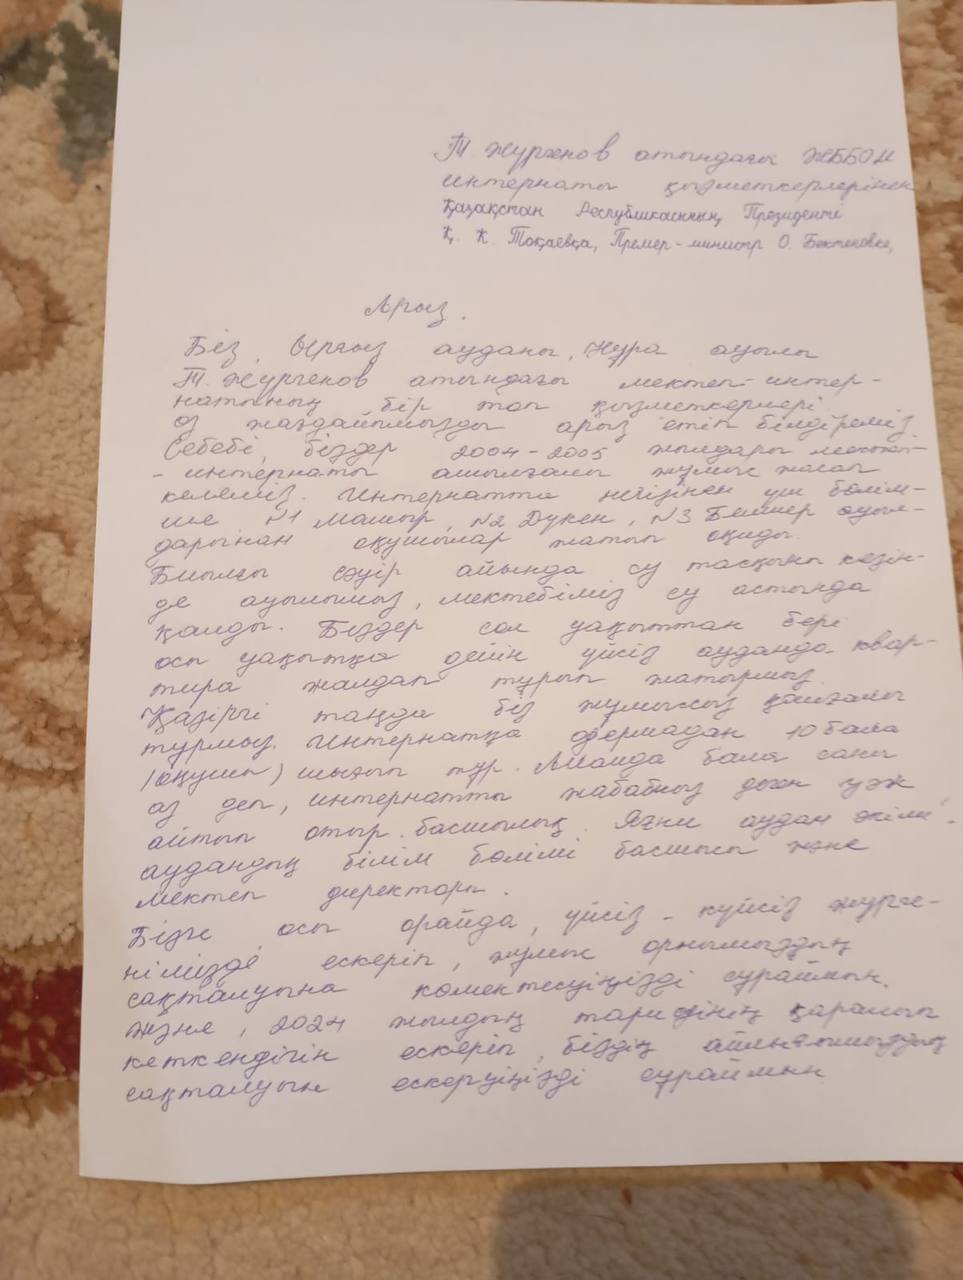 Т Жургенов атындағы ЖББОМ
интернаты қызметкерлерінен
Қазақстан Республикасының Президенті
Қ. К. Тоқаевқа, Премер-министр О. Бектеновке,
Арыз.
Біз, Ырғыз ауданы, Нұра ауылы
Т. Жургенов атындағы мектеп-интер-
натының бір топ қызметкерлері
өз жағдайымызды арыз етіп білдіреміз.
Себебі, біздер 2004-2005 жылдары мектеп-
- интернаты ашылғалы жұмыс жасап
келеміз. Интернатта негізінен үш бөлім-
ше N1 Мамыр, N2 Дукен, N3 Белшер ауыл-
дарынан оқушылар жатып оқиды.
Биылғы сәуір айында су тасқыны кезін-
де ауылымыз, мектебіміз су астында
қалды. Біздер сол уақыттан бері
осы уақытқа дейін үйсіз ауданда квар-
тира жалдап тұрып жатырмыз.
Қазіргі таңда біз жұмыссыз қалғалы
турмыз. Интернатқа фермадан 10 бала
(оқушы) шығып тұр. Алайда бала саны
аз деп, интернатты жабамыз деген уәж
айтып отыр басшылық. Яғни аудан әкімі,
аудандық білім бөлімі басшысы және
мектеп директоры.
Бізге осы орайда, үйсіз-күйсіз жүрге-
німізді ескеріп, жұмыс орнымыздың
сақталуына көмектесуіңізді сұраймын.
Және, 2024 жылдың тарифінің қаралып
кеткендігін ескеріп, біздің айлығымыздың
сақталуын ескеруіңізді сұраймын